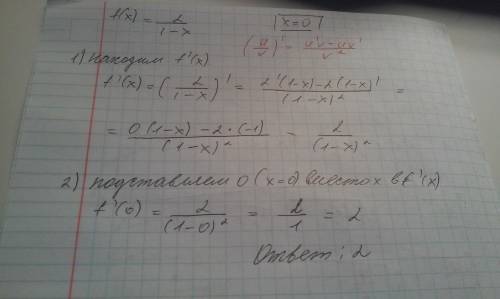 f(x) = 2/(1-x) |x=0|
(u/v)' = (u'v-uv')/v²
1) Находим f'(x)
f'(x) = (2/(1-x))' = (2'(1-x)-2(1-x)')/(1-x)² =
= (0(1-x)-2·(-1))/(1-x)² - 2/(1-x)²
2) подставляем 0 (x=0) вместо x в f'(x)
f'(0) = 2/(1-0)² = 2/1 = 2
Ответ: 2